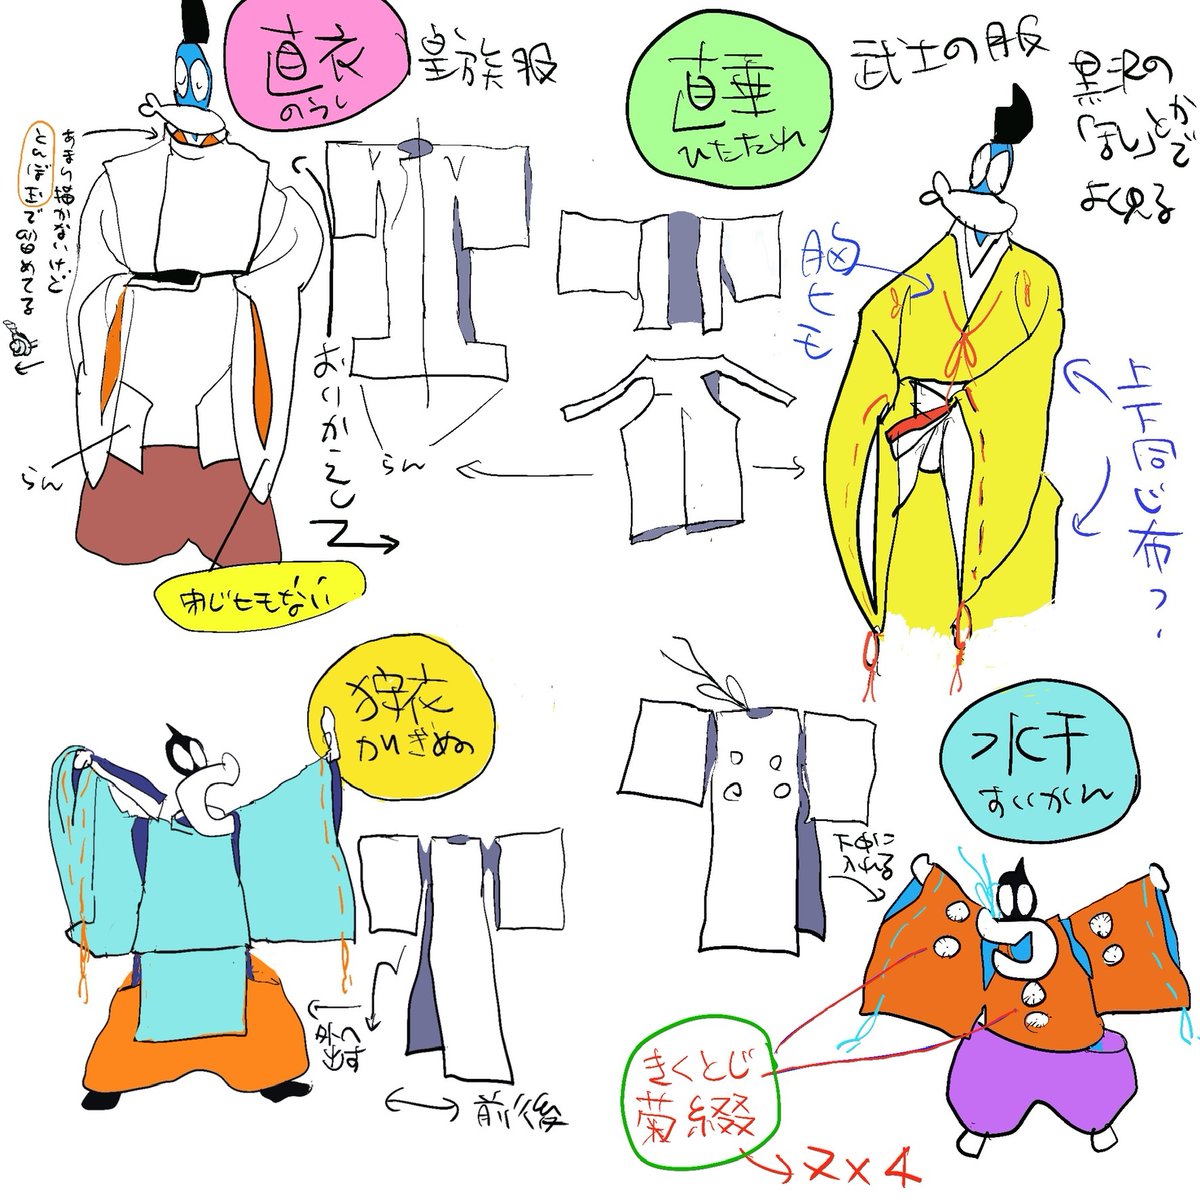 直衣
のうし
皇族服
あまり描かないけど
とんぼ玉で留めてる
おりかえし
らん
らん
閉じヒモない
直垂
ひたたれ
武士の服
黒沢の
「乱」とかで
よく見る
胸ヒモ
上下同じ布っ.
狩衣
かりぎぬ
外へ出す
前後
水干
すいかん
下中に
入れる
きくとじ
菊綴
2×4